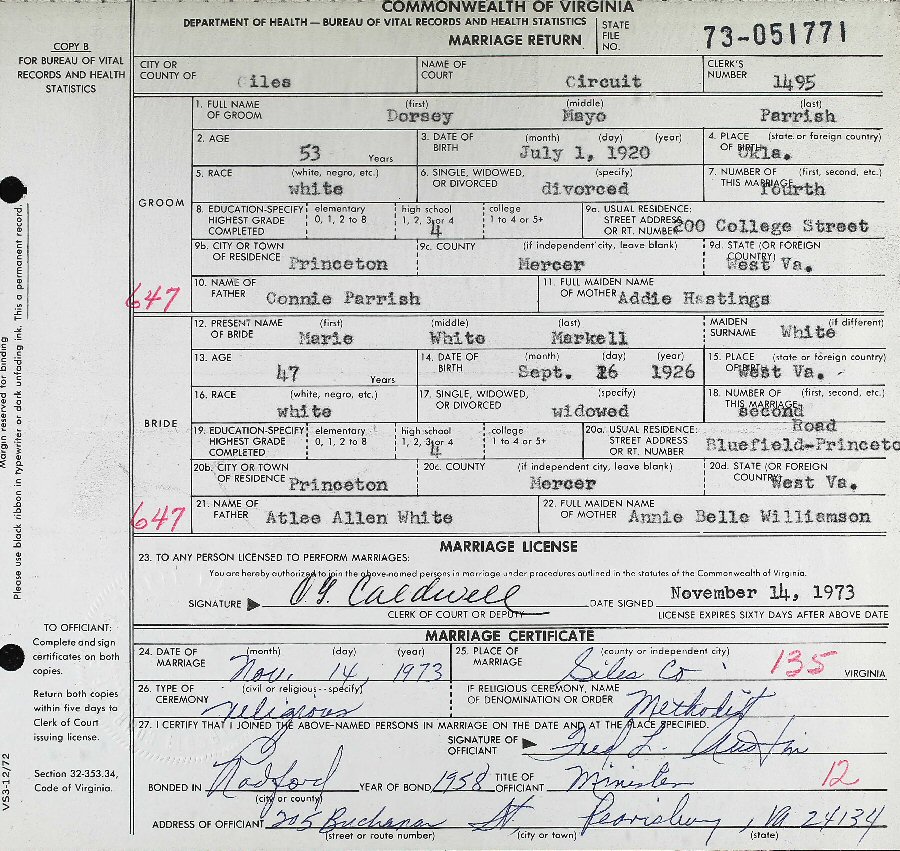 COMMONWEALTH OF VIRGINIA
DEPARTMENT OF HEALTH — BUREAU OF VITAL RECORDS AND HEALTH STATISTICS
MARRIAGE RETURN
STATE FILE NO. 73-051771
COPY B
FOR BUREAU OF VITAL
RECORDS AND HEALTH
STATISTICS
CITY OR COUNTY OF Giles NAME OF COURT Circuit CLERK'S NUMBER 1495
GROOM
1. FULL NAME OF GROOM (first) Dorsey (middle) Mayo (last) Parrish
2. AGE 53 Years 3. DATE OF BIRTH (month) (day) (year) July 1, 1920 4. PLACE OF BIRTH (state or foreign country) Okla.
5. RACE (white, negro, etc.) white 6. SINGLE, WIDOWED, OR DIVORCED (specify) divorced 7. NUMBER OF THIS MARRIAGE (first, second, etc.) fourth
8. EDUCATION-SPECIFY HIGHEST GRADE COMPLETED elementary 0, 1, 2 to 8 high school 1, 2, 3, or 4 4 college 1 to 4 or 5+ 9a. USUAL RESIDENCE: STREET ADDRESS OR RT. NUMBER 200 College Street
9b. CITY OR TOWN OF RESIDENCE Princeton 9c. COUNTY (if independent city, leave blank) Mercer 9d. STATE (OR FOREIGN COUNTRY) West Va.
647
10. NAME OF FATHER Connie Parrish 11. FULL MAIDEN NAME OF MOTHER Addie Hastings
BRIDE
12. PRESENT NAME OF BRIDE (first) Marie (middle) White (last) Markell MAIDEN SURNAME (if different) White
13. AGE 47 Years 14. DATE OF BIRTH (month) (day) (year) Sept. 16 1926 15. PLACE OF BIRTH (state or foreign country) West Va.
16. RACE (white, negro, etc.) white 17. SINGLE, WIDOWED, OR DIVORCED (specify) widowed 18. NUMBER OF THIS MARRIAGE (first, second, etc.) second
19. EDUCATION-SPECIFY HIGHEST GRADE COMPLETED elementary 0, 1, 2 to 8 high school 1, 2, 3, or 4 4 college 1 to 4 or 5+ 20a. USUAL RESIDENCE: STREET ADDRESS OR RT. NUMBER Road Bluefield-Princeto
20b. CITY OR TOWN OF RESIDENCE Princeton 20c. COUNTY (if independent city, leave blank) Mercer 20d. STATE (OR FOREIGN COUNTRY) West Va.
647
21. NAME OF FATHER Atlee Allen White 22. FULL MAIDEN NAME OF MOTHER Annie Belle Williamson
MARRIAGE LICENSE
23. TO ANY PERSON LICENSED TO PERFORM MARRIAGES:
You are hereby authorized to join the above-named persons in marriage under procedures outlined in the statutes of the Commonwealth of Virginia.
SIGNATURE Caldwell DATE SIGNED November 14, 1973
CLERK OF COURT OR DEPUTY LICENSE EXPIRES SIXTY DAYS AFTER ABOVE DATE
MARRIAGE CERTIFICATE
24. DATE OF MARRIAGE (month) (day) (year) Nov. 14, 1973 25. PLACE OF MARRIAGE (county or independent city) Giles Co 135 VIRGINIA
26. TYPE OF CEREMONY (civil or religious--specify) Religious IF RELIGIOUS CEREMONY, NAME OF DENOMINATION OR ORDER Methodist
27. I CERTIFY THAT I JOINED THE ABOVE-NAMED PERSONS IN MARRIAGE ON THE DATE AND AT THE PLACE SPECIFIED.
SIGNATURE OF OFFICIANT Fred L. Austin
BONDED IN Radford (city or county) YEAR OF BOND 1958 TITLE OF OFFICIANT Minister 12
ADDRESS OF OFFICIANT 205 Buchanan St, Pearisburg, Va 24134
(street or route number) (city or town) (state)
Margin reserved for binding
Please use black ribbon in typewriter or dark unfading ink. This a permanent record.
TO OFFICIANT:
Complete and sign
certificates on both
copies.
Return both copies
within five days to
Clerk of Court
issuing license.
Section 32-353.34,
Code of Virginia.
VS3-12/72